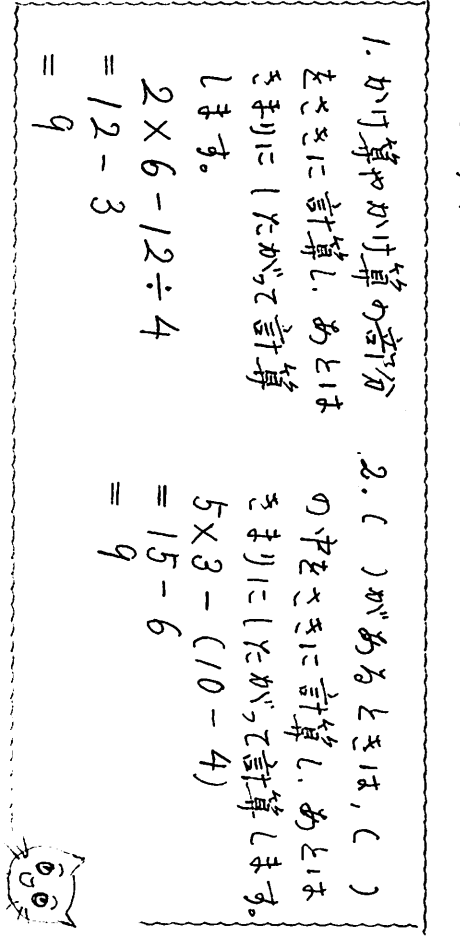 1. かけ算やかけ算の部分
をさきに計算し、あとは
きまりにしたがって計算
します。
2×6-12÷4
=12-3
=9
2. ( )があるときは, ( )
の中をさきに計算し、あとは
きまりにしたがって計算します。
5×3-(10-4)
=15-6
=9